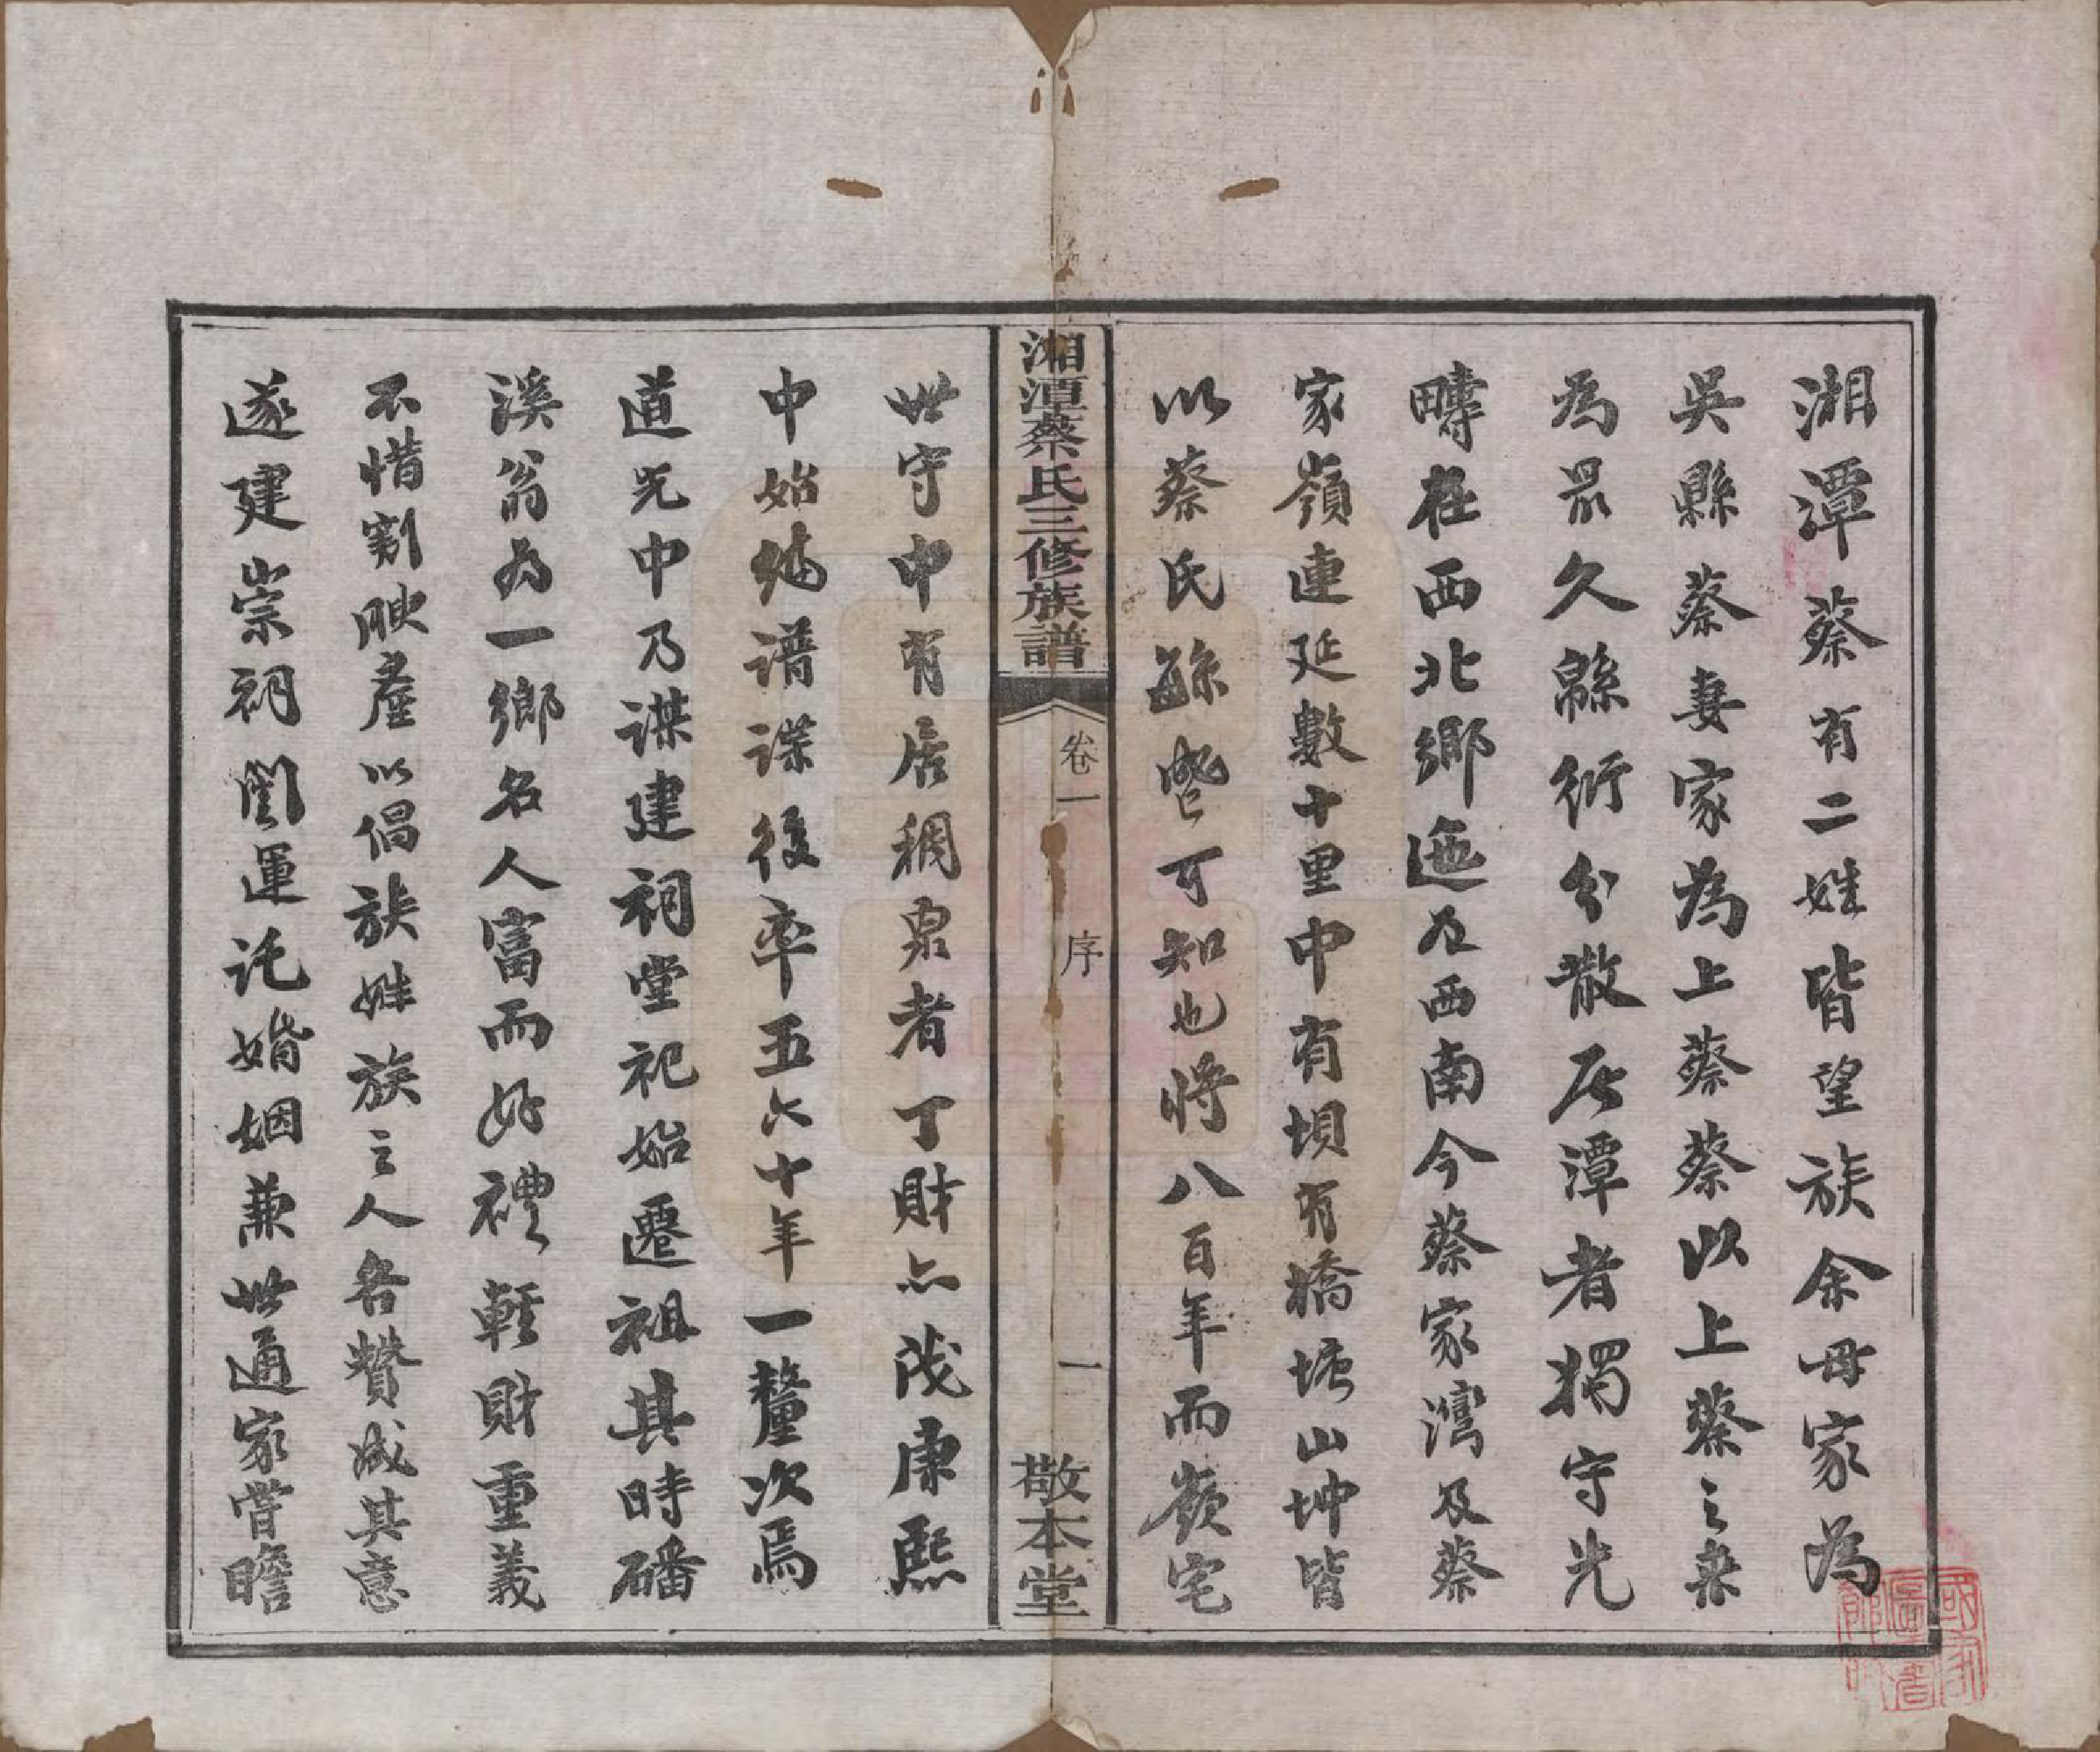 湘潭蔡有二姓皆望族余母家為
吳縣蔡妻家為上蔡蔡以上蔡之来
為最久緜衍分散居潭者獨守先
疇在西北鄉迤及西南今蔡家灣及蔡
家嶺連延數十里中有垻有橋塘山坤皆
以蔡氏繇
可知也將八百年而嶺宅
湘潭蔡氏三修族譜
卷一
序
一
敬本堂
世守中有居稠泉者丁財亦茂康熙
中始編譜諜後率五六十年一釐次焉
道光中乃謀建祠堂祀始遷祖其時磻
溪翁為一鄉名人富而好禮輕財重義
不惜割腴產以倡族姓族之人各贊成其意
遂建崇祠闓運託婚姻兼世通家嘗瞻
國家圖書館